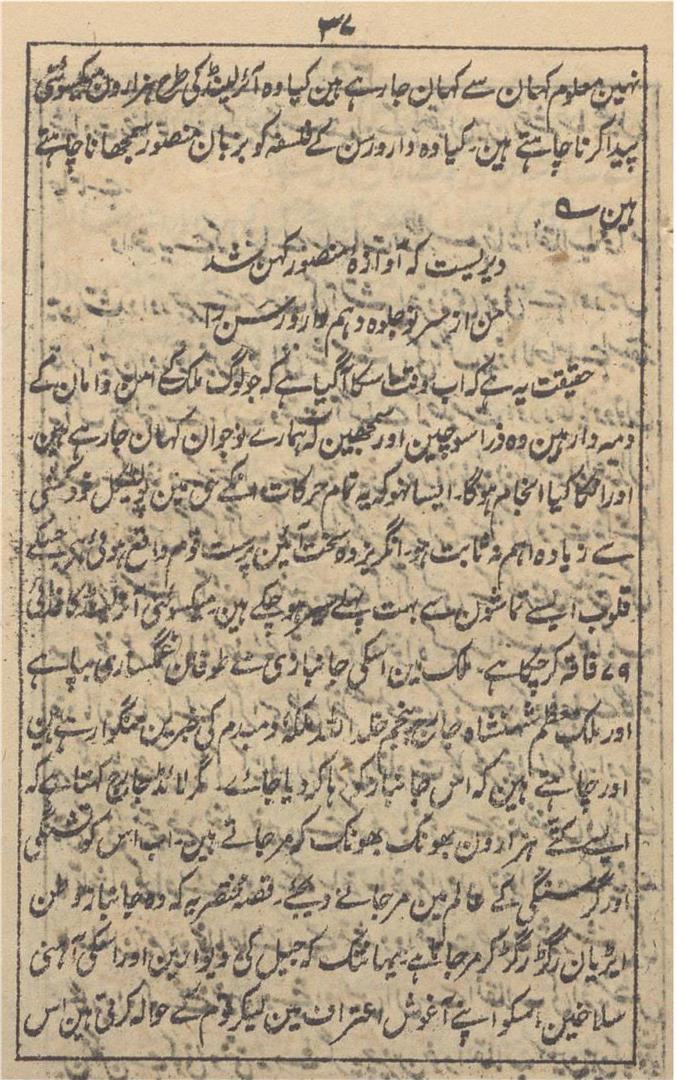 ۳۷
نہین معلوم کہان سے کہان جارہے ہین کیا وہ آئرلینڈ کی طرح ہزارون میکسوئنی
پیدا کرنا چاہتے ہین۔ کیا وہ دارورسن کے فلسفہ کو بزبان منصور سمجھانا چاہتے
ہین ؎
دیریست کہ آوازہ منصور کہن شد
من از سر نو جلوہ دہم دارورسن را
حقیقت یہ ہے کہ اب وقت اسکا آگیا ہے کہ جو لوگ ملک کے امن وامان کے
ذمہ دار ہین وہ ذرا سوچین اور سمجھین کہ ہمارے نوجوان کہان جارہے ہین۔
اور انکا کیا انجام ہوگا۔ ایسا نہو کہ یہ تمام حرکات انکے حق مین پولٹیکل خودکشی
سے زیادہ اہم نہ ثابت ہو۔ انگریز وہ سخت آئین پرست قوم واقع ہوئی ہے جسکے
قلوب ایسے تماشون سے بہت پہلے سیر ہوچکے ہین۔ میکسوئنی آئرلینڈ کا فدائی
۷۹ فاقہ کرچکا ہے۔ ملک مین اسکی جانبازی سے طوفان غمگساری بپا ہے
اور ملک معظم شہنشاہ جارج پنجم خلد اللہ ملکہ دمبدم کی خبرین منگوارہے ہین
اور چاہتے ہین کہ اس جانباز کو رہا کردیا جائے۔ مگر لائڈ جارج کہتا ہے کہ
ایسے کتے ہزارون بھونک بھونک کر مرجاتے ہین۔ اب اس کو تشنگی
اور گرسنگی کے عالم مین مرجانے دیجئے۔ قصہ مختصر یہ کہ وہ جانباز وطن
ایڑیان رگڑ رگڑ کر مرجاتا ہے۔ یہانتک کہ جیل کی دیوارین اور اسکی آہنی
سلاخین اسکو اپنے آغوش اعتراف مین لیکر قوم کے حوالہ کرتی ہین اس